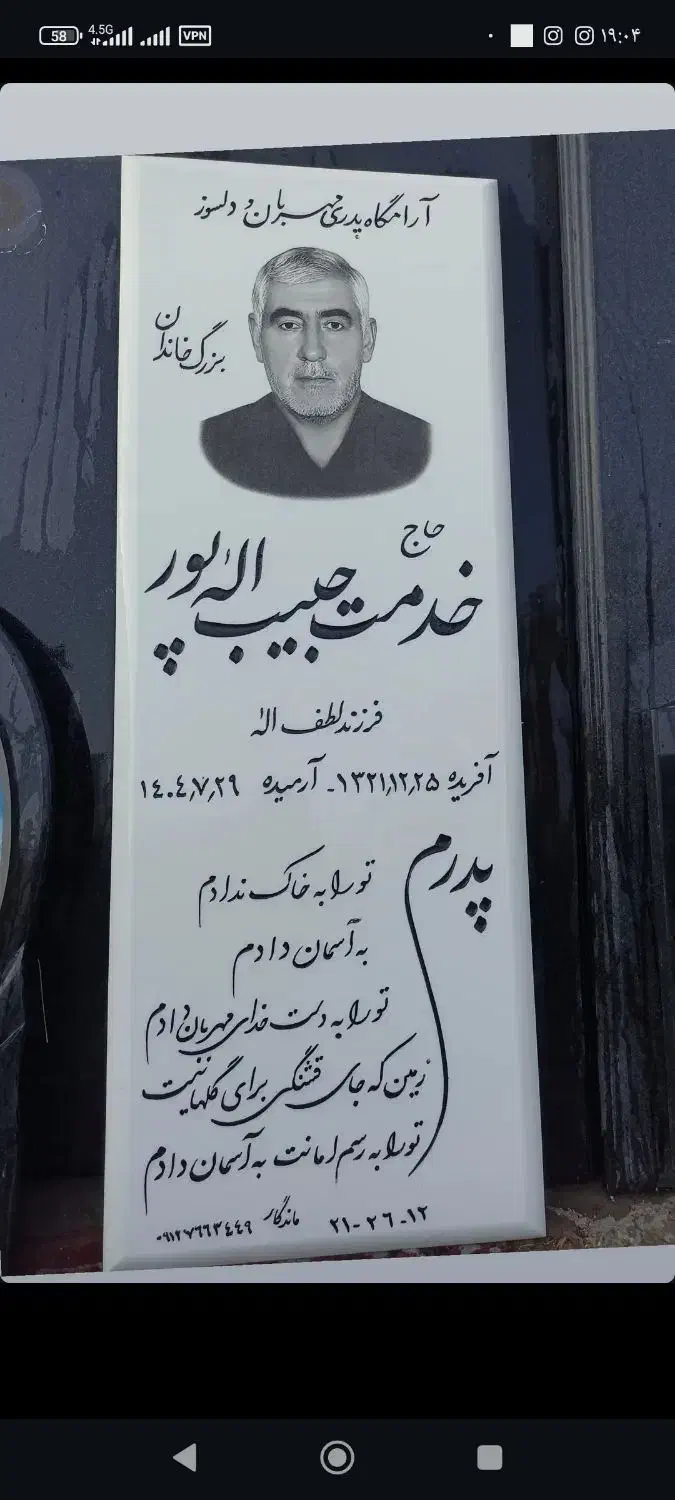 58 4.5G VPN ۱۹:۰۴
آرامگاه پدری مهربان و دلسوز
بزرگ خاندان
حاج
خدمت حبیب اله پور
فرزند لطف اله
آفریده ۱۳۲۱٫۱۲٫۲۵ـ آرمیده ۱٤۰٤٫۷٫۲۹
پدرم
تو را به خاک ندادم
به آسمان دادم
تو را به دست خدای مهربان دادم
زمین که جای قشنگی برای گلها نیست
تو را به رسم امانت به آسمان دادم
۱۲-۲٦-۲۱ ماندگار ۰۹۱۲۷٦٦۳٤٤۹